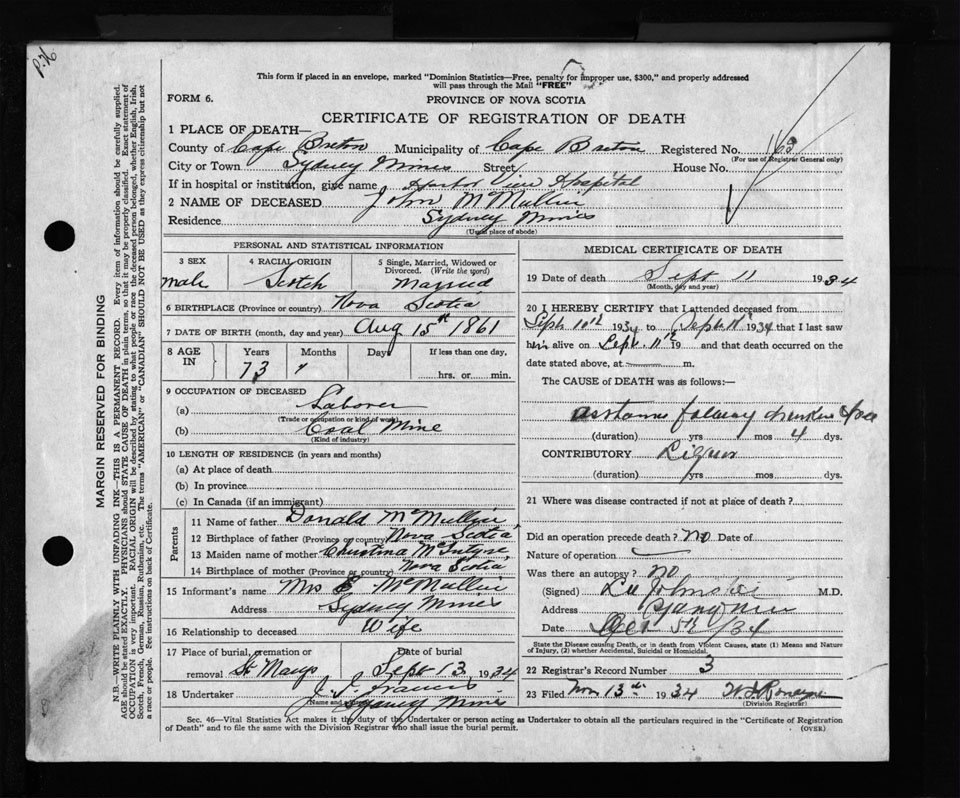 P.76
This form if placed in an envelope, marked "Dominion Statistics—Free, penalty for improper use, $300," and properly addressed
will pass through the Mail "FREE"
FORM 6.
PROVINCE OF NOVA SCOTIA
CERTIFICATE OF REGISTRATION OF DEATH
1 PLACE OF DEATH—
County of Cape Breton Municipality of Cape Breton Registered No.
(For use of Registrar General only)
City or Town Sydney Mines Street House No.
If in hospital or institution, give name Harbor View Hospital
2 NAME OF DECEASED John McMullin
Residence Sydney Mines
(Usual place of abode)
PERSONAL AND STATISTICAL INFORMATION
3 SEX male
4 RACIAL ORIGIN Scotch
5 Single, Married, Widowed or Divorced. (Write the word) Married
6 BIRTHPLACE (Province or country) Nova Scotia
7 DATE OF BIRTH (month, day and year) Aug 15th 1861
8 AGE IN Years 73 Months Days If less than one day, hrs. or min.
9 OCCUPATION OF DECEASED
(a) Laborer
(Trade or occupation or kind of work)
(b) Coal Mine
(Kind of industry)
10 LENGTH OF RESIDENCE (in years and months)
(a) At place of death
(b) In province
(c) In Canada (if an immigrant)
Parents
11 Name of father Donald McMullin
12 Birthplace of father (Province or country) Nova Scotia
13 Maiden name of mother Christina McIntyre
14 Birthplace of mother (Province or country) Nova Scotia
15 Informant's name Mrs McMullin
Address Sydney Mines
16 Relationship to deceased Wife
17 Place of burial, cremation or removal St Marys Date of burial Sept 13 1934
18 Undertaker J. Francis
(Name and address) Sydney Mines
MEDICAL CERTIFICATE OF DEATH
19 Date of death Sept 11 1934
(Month, day and year)
20 I HEREBY CERTIFY that I attended deceased from
Sept 10th 1934 to Sept 11th 1934 that I last saw
him alive on Sept. 11th 19 and that death occurred on the
date stated above, at m.
The CAUSE of DEATH was as follows:—
(duration) yrs mos 4 dys.
CONTRIBUTORY Liquor
(duration) yrs mos dys.
21 Where was disease contracted if not at place of death?
Did an operation precede death? No Date of
Nature of operation
Was there an autopsy? No
(Signed) M.D.
Address
Date 5th/34
State the Disease causing Death, or in death from Violent Causes, state (1) Means and Nature
of Injury, (2) whether Accidental, Suicidal or Homicidal.
22 Registrar's Record Number 3
23 Filed Nov 13th 1934
(Division Registrar)
Sec. 46—Vital Statistics Act makes it the duty of the Undertaker or person acting as Undertaker to obtain all the particulars required in the "Certificate of Registration
of Death" and to file the same with the Division Registrar who shall issue the burial permit.
(OVER)
MARGIN RESERVED FOR BINDING
N.B.—WRITE PLAINLY WITH UNFADING INK—THIS IS A PERMANENT RECORD. Every item of information should be carefully supplied.
AGE should be stated EXACTLY. PHYSICIANS should STATE CAUSE OF DEATH in plain terms, so that it may be properly classified. Exact statement of
OCCUPATION is very important. RACIAL ORIGIN will be described by stating to what people or race the deceased person belonged, whether English, Irish,
Scotch, French, German, Russian, Ruthenian, etc. The terms "AMERICAN" or "CANADIAN" SHOULD NOT BE USED as they express citizenship but not
a race or people. See instructions on back of Certificate.